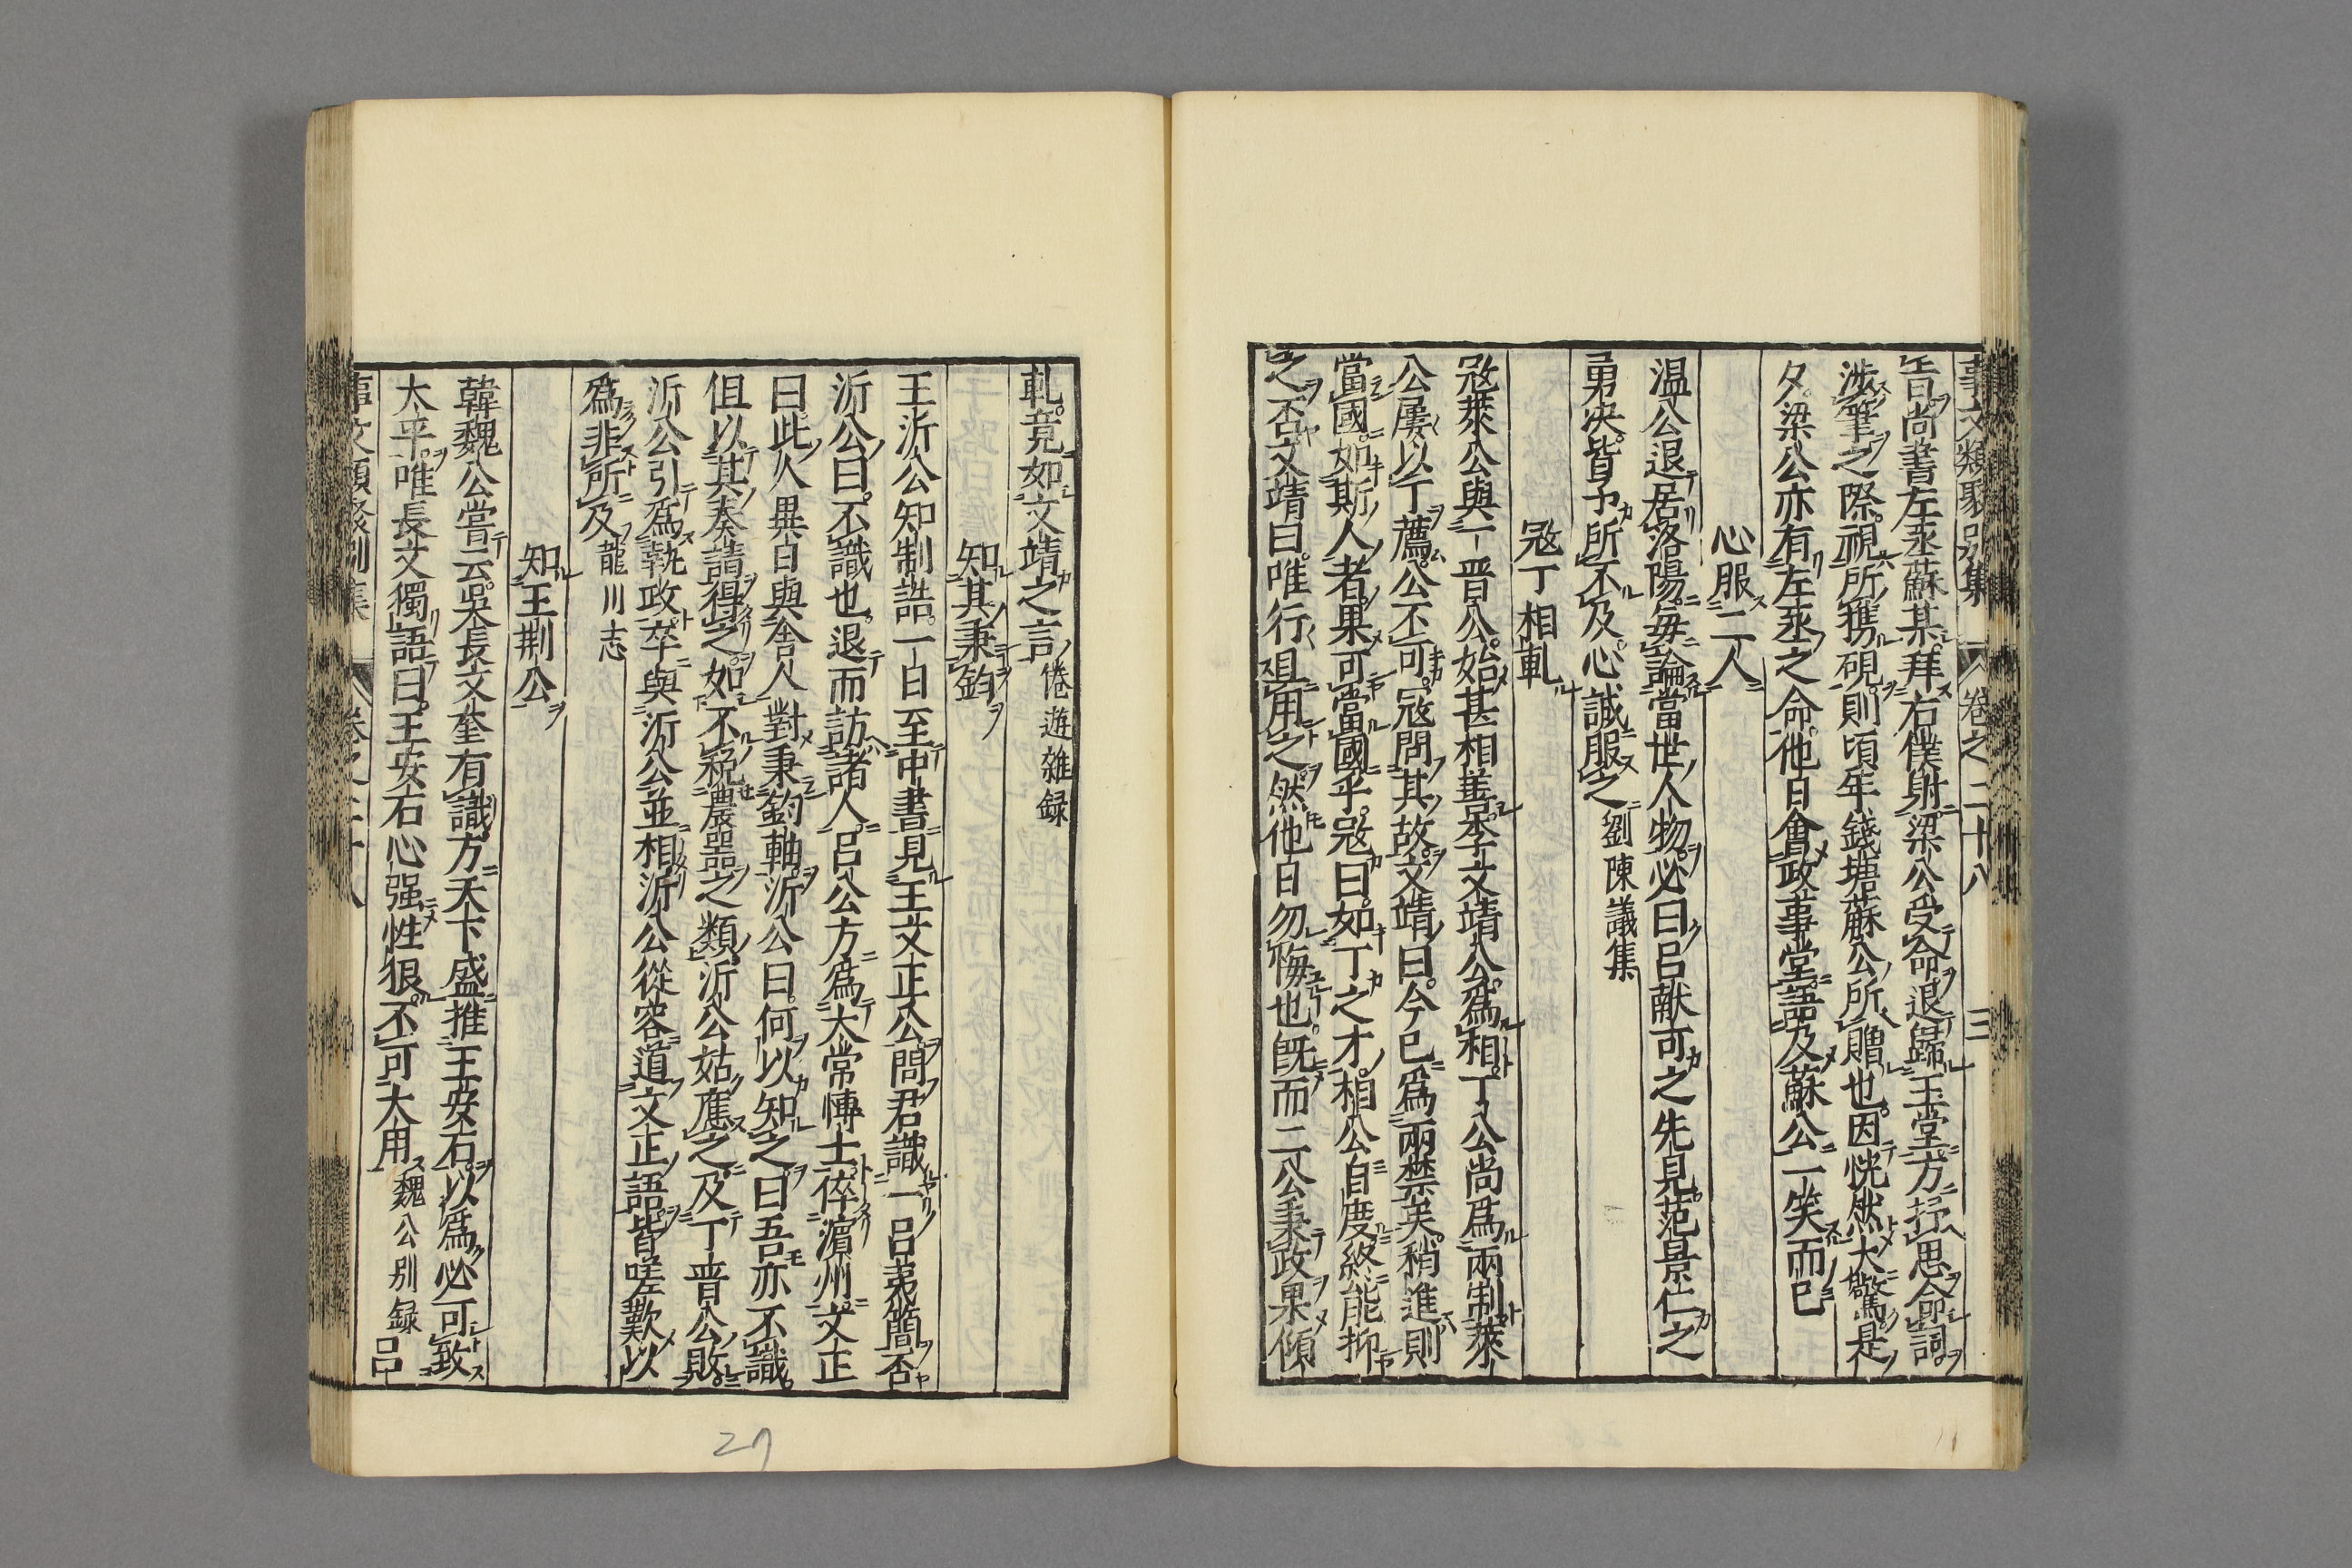 事文類聚別集 卷之二十八 三
旨尚書左丞蘇某拜右僕射梁公受命退歸玉堂方抒思命詞
涉筆之際視所獲硯則頃年錢塘蘇公所贈也因恍然大驚是
夕梁公亦有左丞之命他日會政事堂語及蘇公一笑而已
心服二人
温公退居洛陽每論當世人物必曰呂献可之先見范景仁之
勇决皆予所不及心誠服之 劉陳議集
冦丁相軋
冦萊公與丁晋公始甚相善李文靖公爲相丁公尚爲兩制萊
公屢以丁薦公不可冦問其故文靖曰今已爲兩禁矣稍進則
當國如斯人者果可當國乎冦曰如丁之才相公自度終能抑
之否文靖曰唯行且用之然他日勿悔也既而二公秉政果傾
軋竟如文靖之言 倦遊雜録
知其秉鈞
王沂公知制誥一日至中書見王文正公問君識一呂夷簡否
沂公曰不識也退而訪諸人呂公方爲太常博士倅濵州文正
曰此人異日與舍人對秉鈞軸沂公曰何以知之曰吾亦不識
但以其奏請得之如不稅農噐之類沂公姑應之及丁晋公敗
沂公引爲執政卒與沂公並相沂公從容道文正語皆嗟歎以
爲非所及 龍川志
知王荆公
韓魏公嘗云吳長文奎有識方天下盛推王安石以爲必可致
太平唯長文獨語曰王安石心强性狠不可大用 魏公别録 呂
事文類聚別集 卷之二十八
27